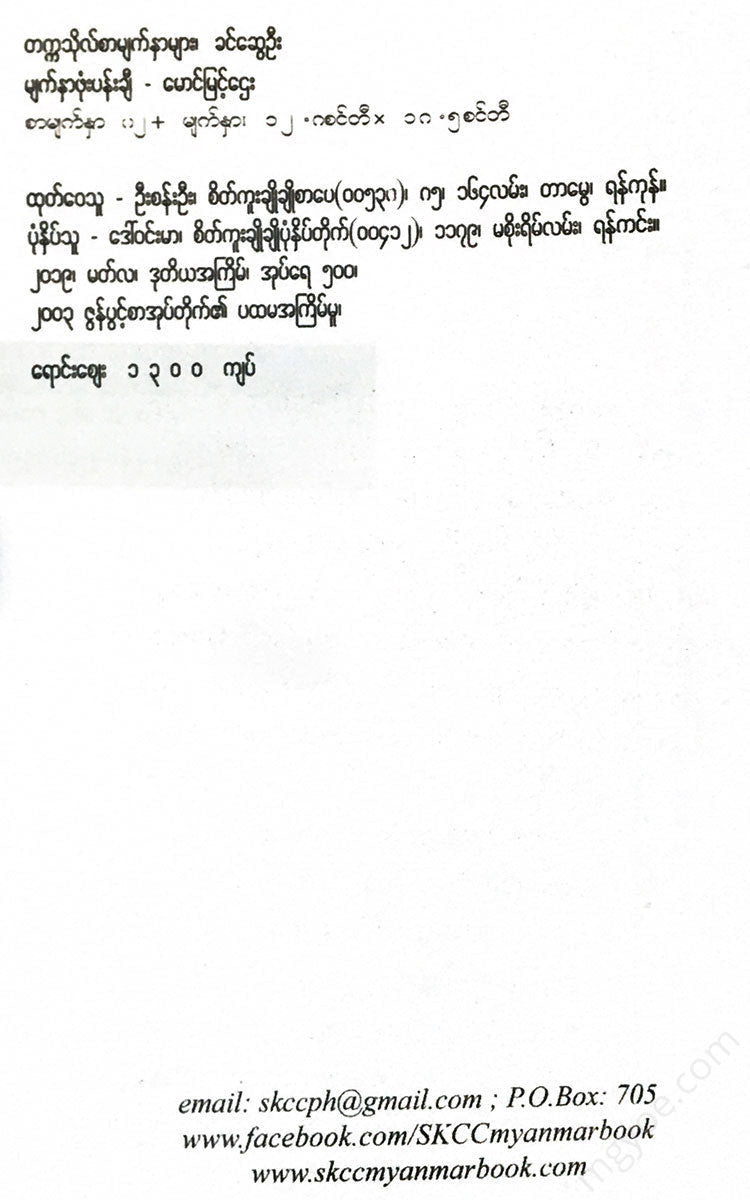 တက္ကသိုလ်စာမျက်နှာများ၊ ခင်ဆွေဦး
မျက်နှာဖုံးပန်းချီ - မောင်မြင့်ဌေး
စာမျက်နှာ ၈၂+ မျက်နှာ၊ ၁၂.၈စင်တီ× ၁၈.၅စင်တီ
ထုတ်ဝေသူ - ဦးစန်းဦး၊ စိတ်ကူးချိုချိုစာပေ(၀၀၅၃၈)၊ ၈၅၊ ၁၆၄လမ်း၊ တာမွေ၊ ရန်ကုန်။
ပုံနှိပ်သူ - ဒေါ်ဝင်းမာ၊ စိတ်ကူးချိုချိုပုံနှိပ်တိုက်(၀၀၄၁၂)၊ ၁၁၇၉၊ မစိုးရိမ်လမ်း၊ ရန်ကင်း။
၂၀၁၉၊ မတ်လ၊ ဒုတိယအကြိမ်၊ အုပ်ရေ ၅၀၀၊
၂၀၀၃ ဇွန်ပွင့်စာအုပ်တိုက်၏ ပထမအကြိမ်မူ၊
ရောင်းဈေး ၁ ၃ ၀ ၀ ကျပ်
email: skccph@gmail.com ; P.O.Box: 705
www.facebook.com/SKCCmyanmarbook
www.skccmyanmarbook.com